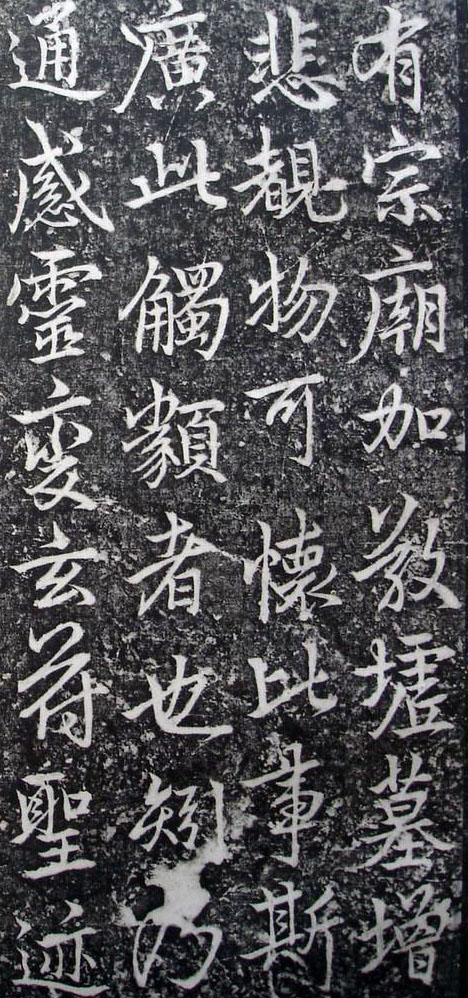 有宗廟加敬墟墓增
悲覩物可懷此事斯
廣此觸類者也矧乃
通感靈變玄符聖迹